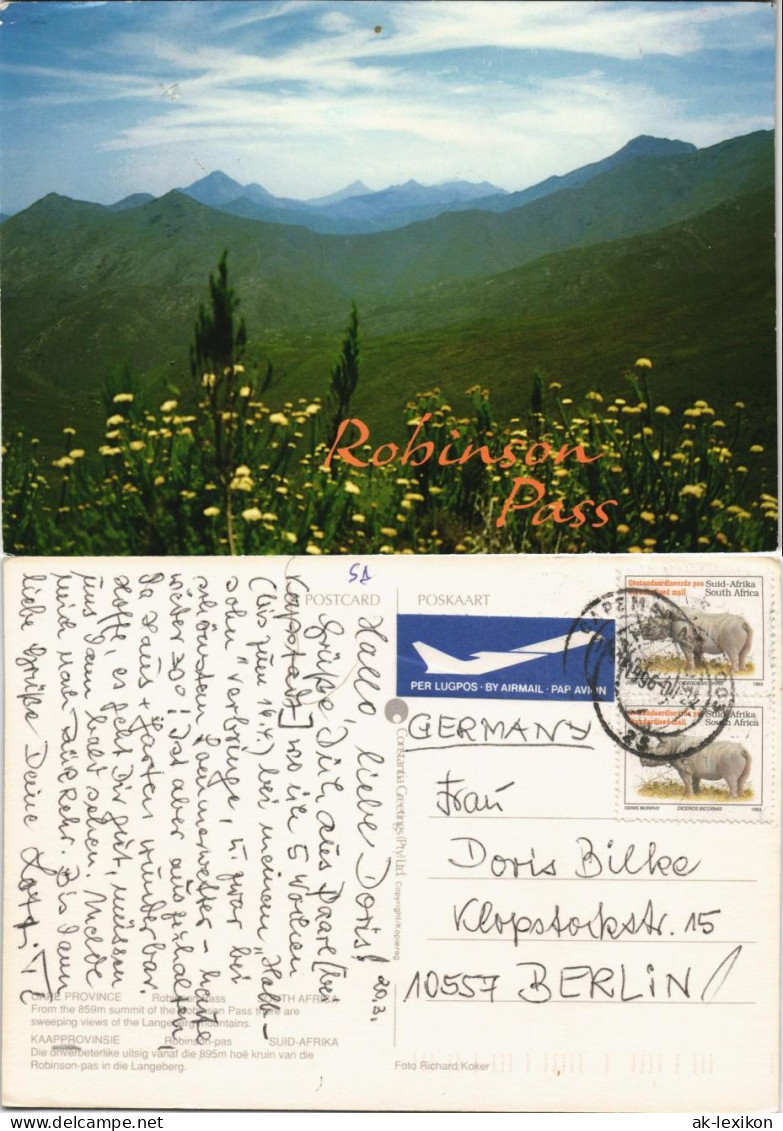 Robinson
Pass
POSTCARD
POSKAART
PER LUGPOS · BY AIRMAIL · PAP AVION
Gestandaardiseerde pos
Standardised mail
Suid-Afrika
South Africa
1993
Gestandaardiseerde pos
Standardised mail
Suid-Afrika
South Africa
DENIS MURPHY
DICEROS BICORNIS
1993
Constantia Greetings (Pty) Ltd. Copyright/Kopiereg
GERMANY
Frau
Doris Bilke
Klopstockstr. 15
10557 BERLIN
20.3.
Hallo liebe Doris!
Grüße Dich aus Paarl [bei
Kapstadt] wo ich 5 Wochen
(bis zum 14.4.) bei meinem "Halb-
sohn" verbringe, u. zwar bei
schönstem Sommerwetter – heute
wieder 30°! Ist aber auszuhalten,
da Haus + Garten wunderbar.
Hoffe, es geht Dir gut, müssen
uns dann bald sehen. Melde
mich nach Rückkehr. Bis dann
liebe Grüße Deine
CAPE PROVINCE Robinson Pass SOUTH AFRICA
From the 859m summit of the Robinson Pass there are
sweeping views of the Langeberg mountains.
KAAPPROVINSIE Robinson-pas SUID-AFRIKA
Die onverbeterlike uitsig vanaf die 895m hoë kruin van die
Robinson-pas in die Langeberg.
Foto Richard Koker
ak-lexikon